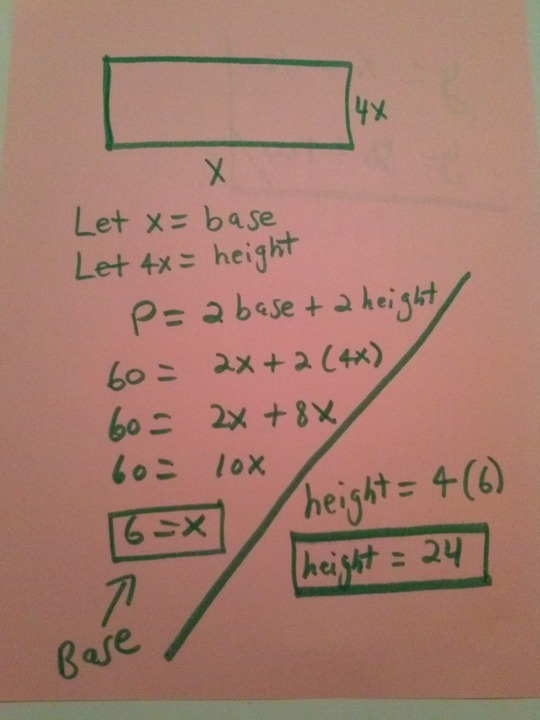 4x
x
Let x = base
Let 4x = height
P = 2 base + 2 height
60 = 2x + 2 (4x)
60 = 2x + 8x
60 = 10x
6 = x
Base
height = 4(6)
height = 24